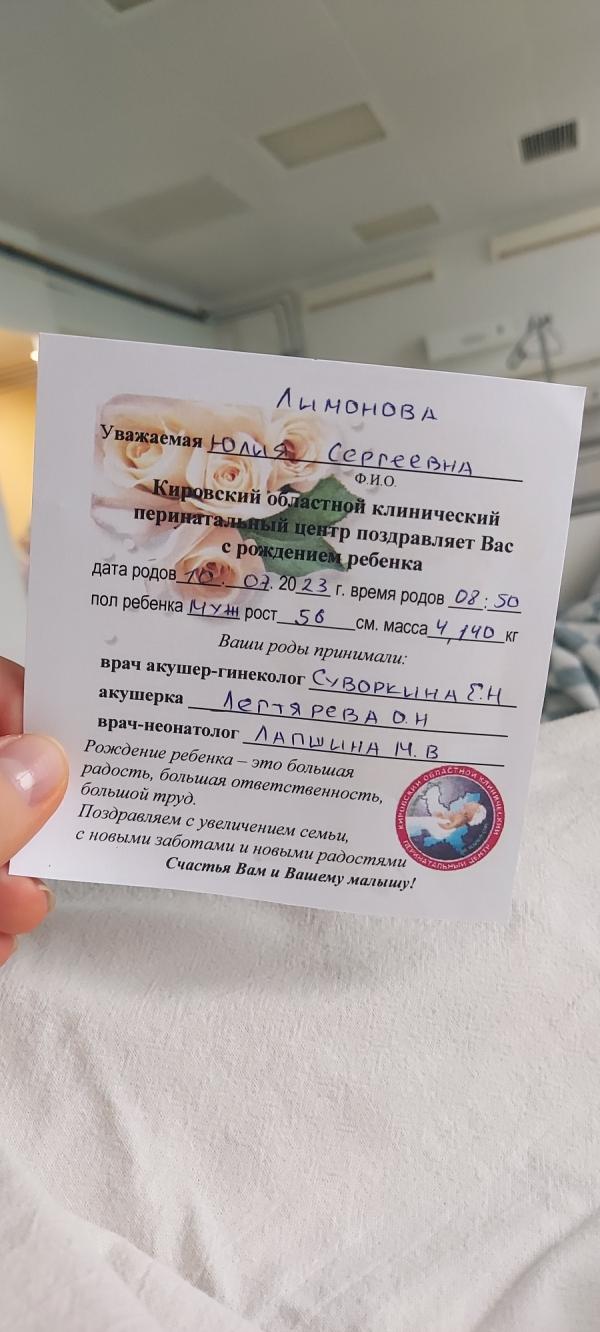 Лимонова
Уважаемая Юлия Сергеевна
Ф.И.О.
Кировский областной клинический
перинатальный центр поздравляет Вас
с рождением ребенка
дата родов 10. 07. 2023 г. время родов 08:50
пол ребенка муж рост 56 см. масса 4,140 кг
Ваши роды принимали:
врач акушер-гинеколог Суворкина Е.Н
акушерка Легтярева О.Н
врач-неонатолог Лапшина М.В
Рождение ребенка – это большая
радость, большая ответственность,
большой труд.
Поздравляем с увеличением семьи,
с новыми заботами и новыми радостями
Счастья Вам и Вашему малышу!
КИРОВСКИЙ ОБЛАСТНОЙ КЛИНИЧЕСКИЙ
ПЕРИНАТАЛЬНЫЙ ЦЕНТР